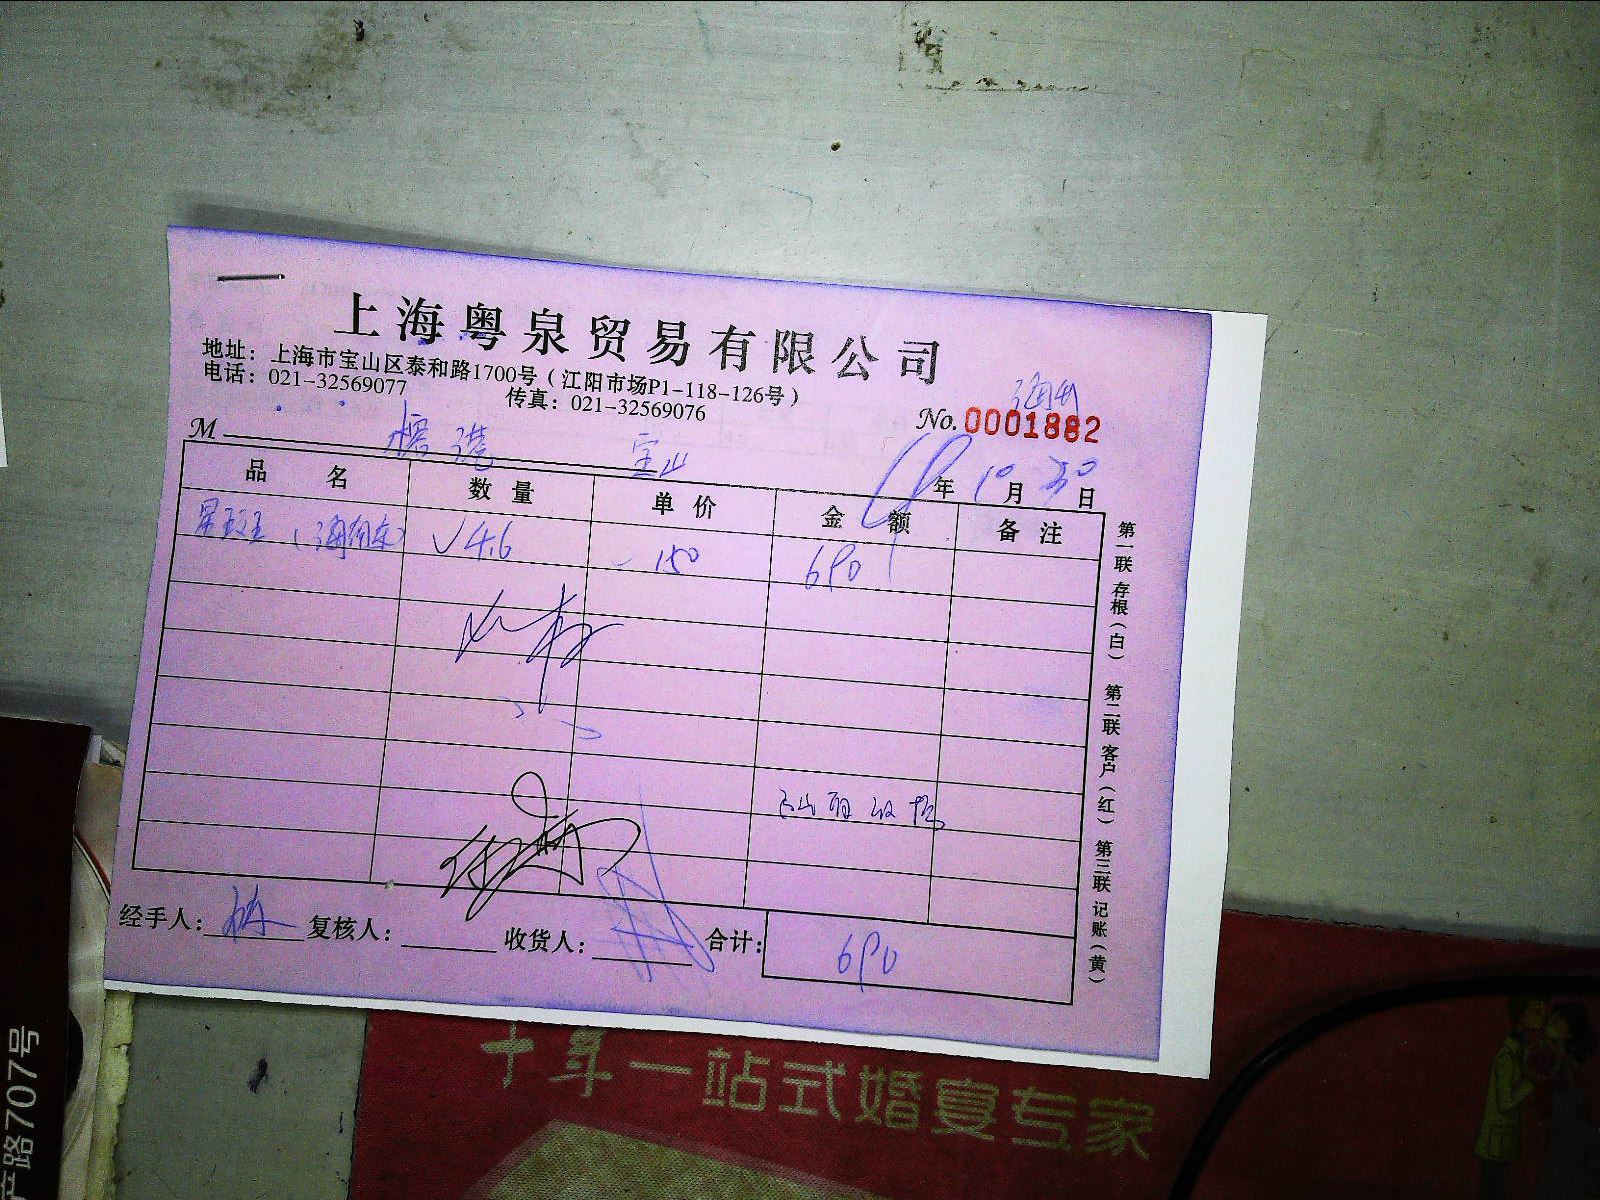 上海粤泉贸易有限公司
地址：上海市宝山区泰和路1700号（江阳市场P1-118-126号）
电话：021-32569077 传真：021-32569076
No. 0001882
M 宝山
年 10 月 30 日
品名 数量 单价 金额 备注
4.6 150 690
经手人： 复核人： 收货人： 合计： 690
第一联 存根（白） 第二联 客户（红） 第三联 记账（黄）
十年一站式婚宴专家
产路707号